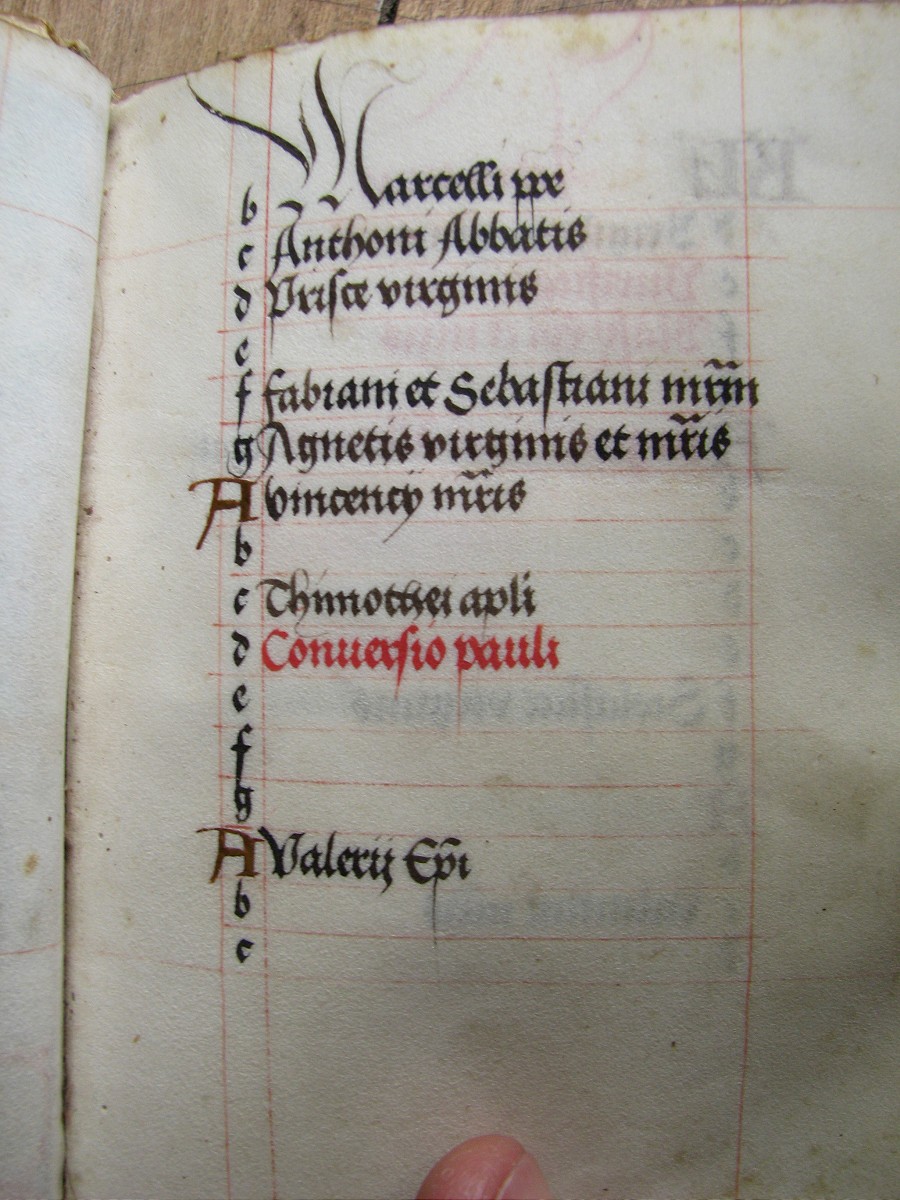 b Marcelli ppe
c Anthoni Abbatis
d Prisce virginis
e
f fabiani et Sebastiani mr̄m
g Agnetis virginis et mr̄is
A vincencij mr̄is
b
c Thimothei apli
d Conuersio pauli
e
f
g
A Valerij Ep̄i
b
c